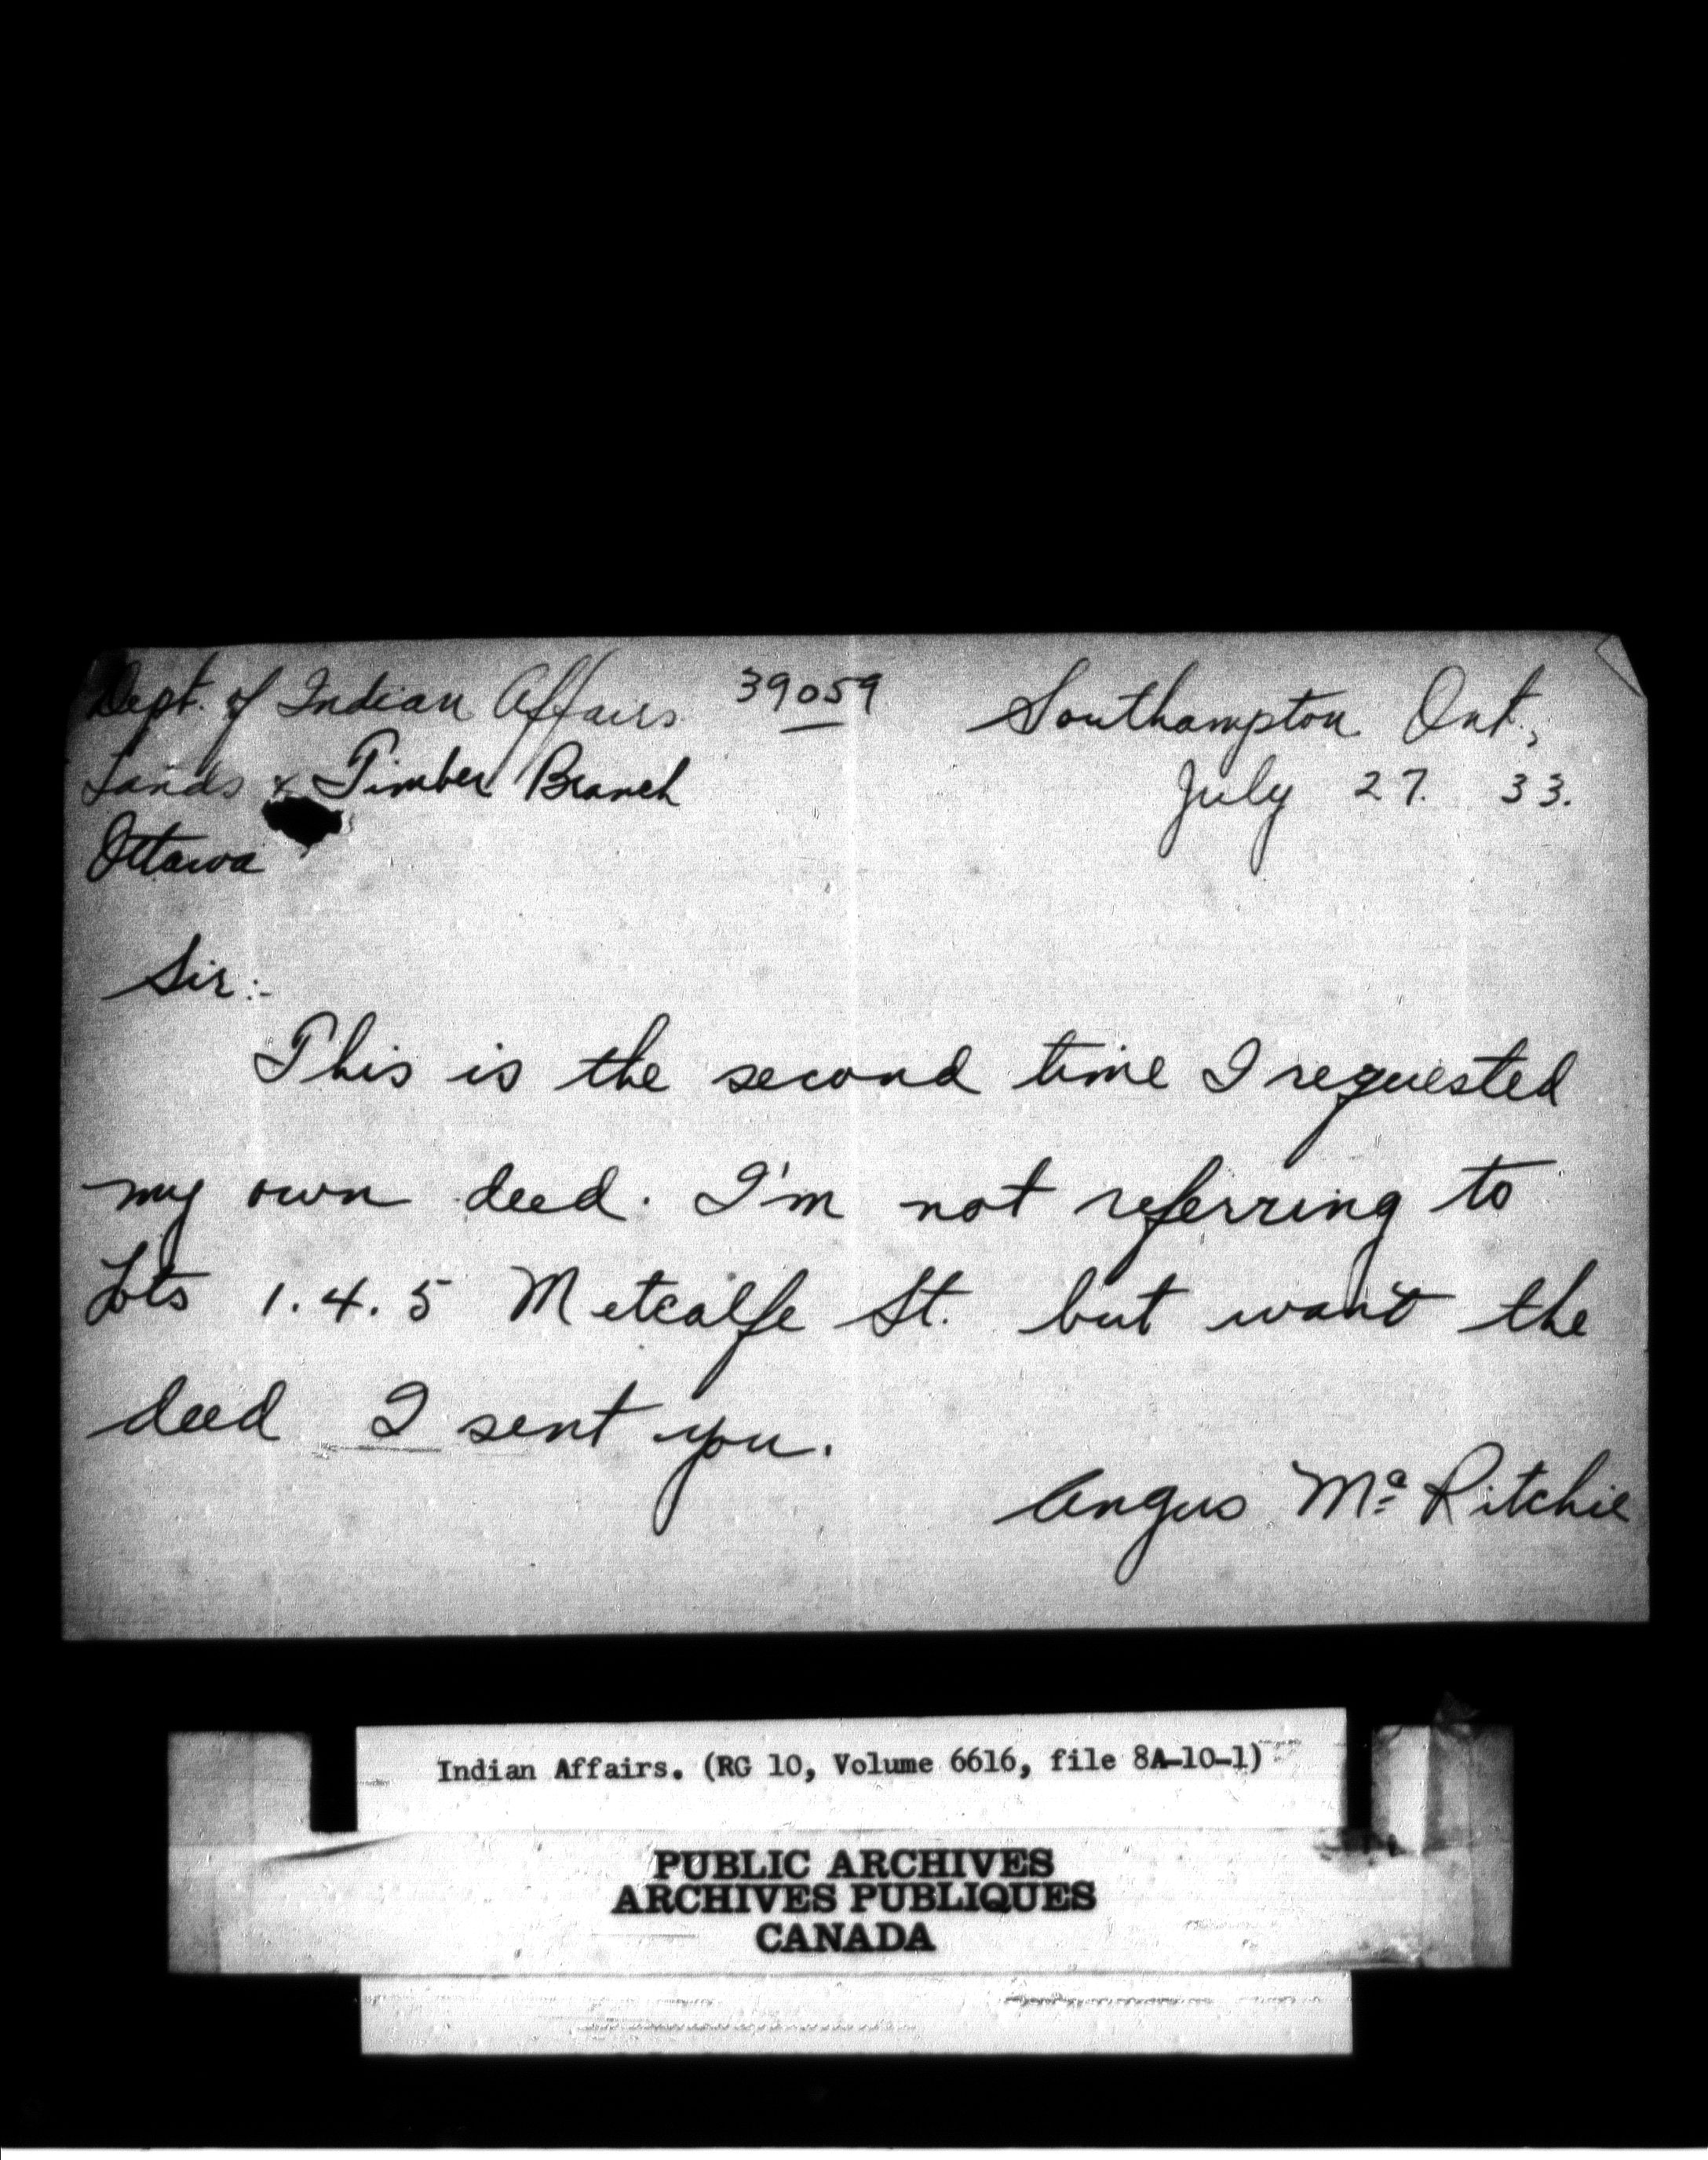 Dept. of Indian Affairs 39059 Southampton Ont.,
Lands & Timber Branch July 27. 33.
Ottawa
Sir:-
This is the second time I requested
my own deed. I'm not referring to
Lots 1.4.5 Metcalfe St. but want the
deed I sent you.
Angus Mc Ritchie
Indian Affairs. (RG 10, Volume 6616, file 8A-10-1)
PUBLIC ARCHIVES
ARCHIVES PUBLIQUES
CANADA